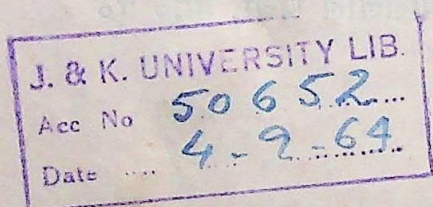 J. & K. UNIVERSITY LIB.
Acc No 50652....
Date .... 4-9-64